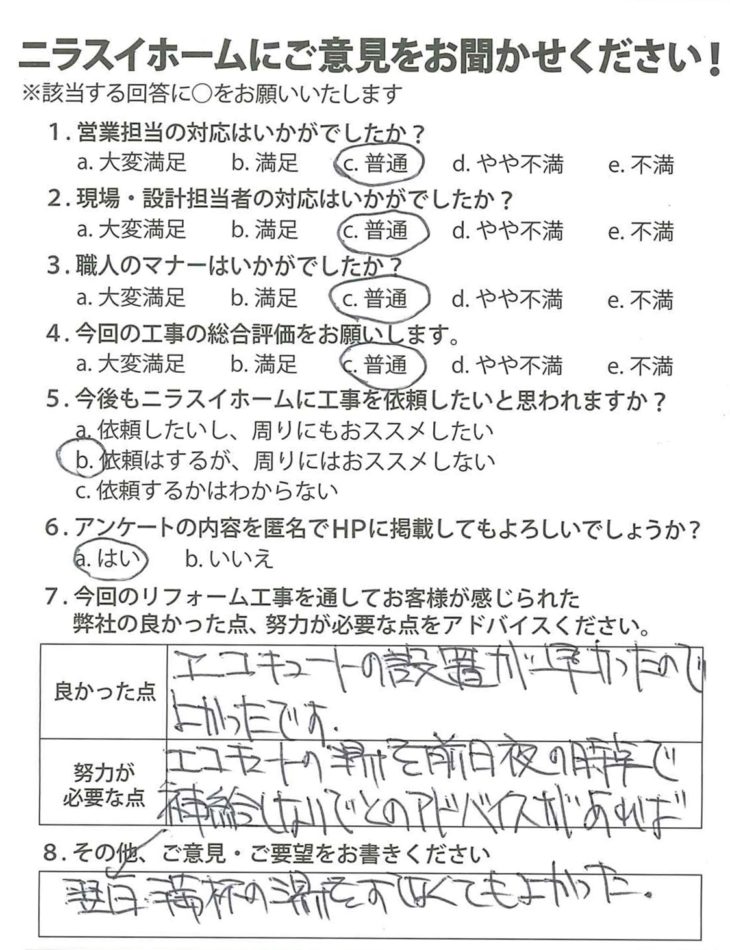 ニラスイホームにご意見をお聞かせください！
※該当する回答に○をお願いいたします
1．営業担当の対応はいかがでしたか？
a. 大変満足 b. 満足 c. 普通 d. やや不満 e. 不満
2．現場・設計担当者の対応はいかがでしたか？
a. 大変満足 b. 満足 c. 普通 d. やや不満 e. 不満
3．職人のマナーはいかがでしたか？
a. 大変満足 b. 満足 c. 普通 d. やや不満 e. 不満
4．今回の工事の総合評価をお願いします。
a. 大変満足 b. 満足 c. 普通 d. やや不満 e. 不満
5．今後もニラスイホームに工事を依頼したいと思われますか？
a. 依頼したいし、周りにもおススメしたい
b. 依頼はするが、周りにはおススメしない
c. 依頼するかはわからない
6．アンケートの内容を匿名でHPに掲載してもよろしいでしょうか？
a. はい b. いいえ
7．今回のリフォーム工事を通してお客様が感じられた
弊社の良かった点、努力が必要な点をアドバイスください。
良かった点
エコキュートの設置が早かったので
よかったです.
努力が
必要な点
エコキュートの湯を前日夜の時点で
補給しないでとのアドバイスがあれば
8．その他、ご意見・ご要望をお書きください
翌日満杯の湯をすてなくてもよかった.